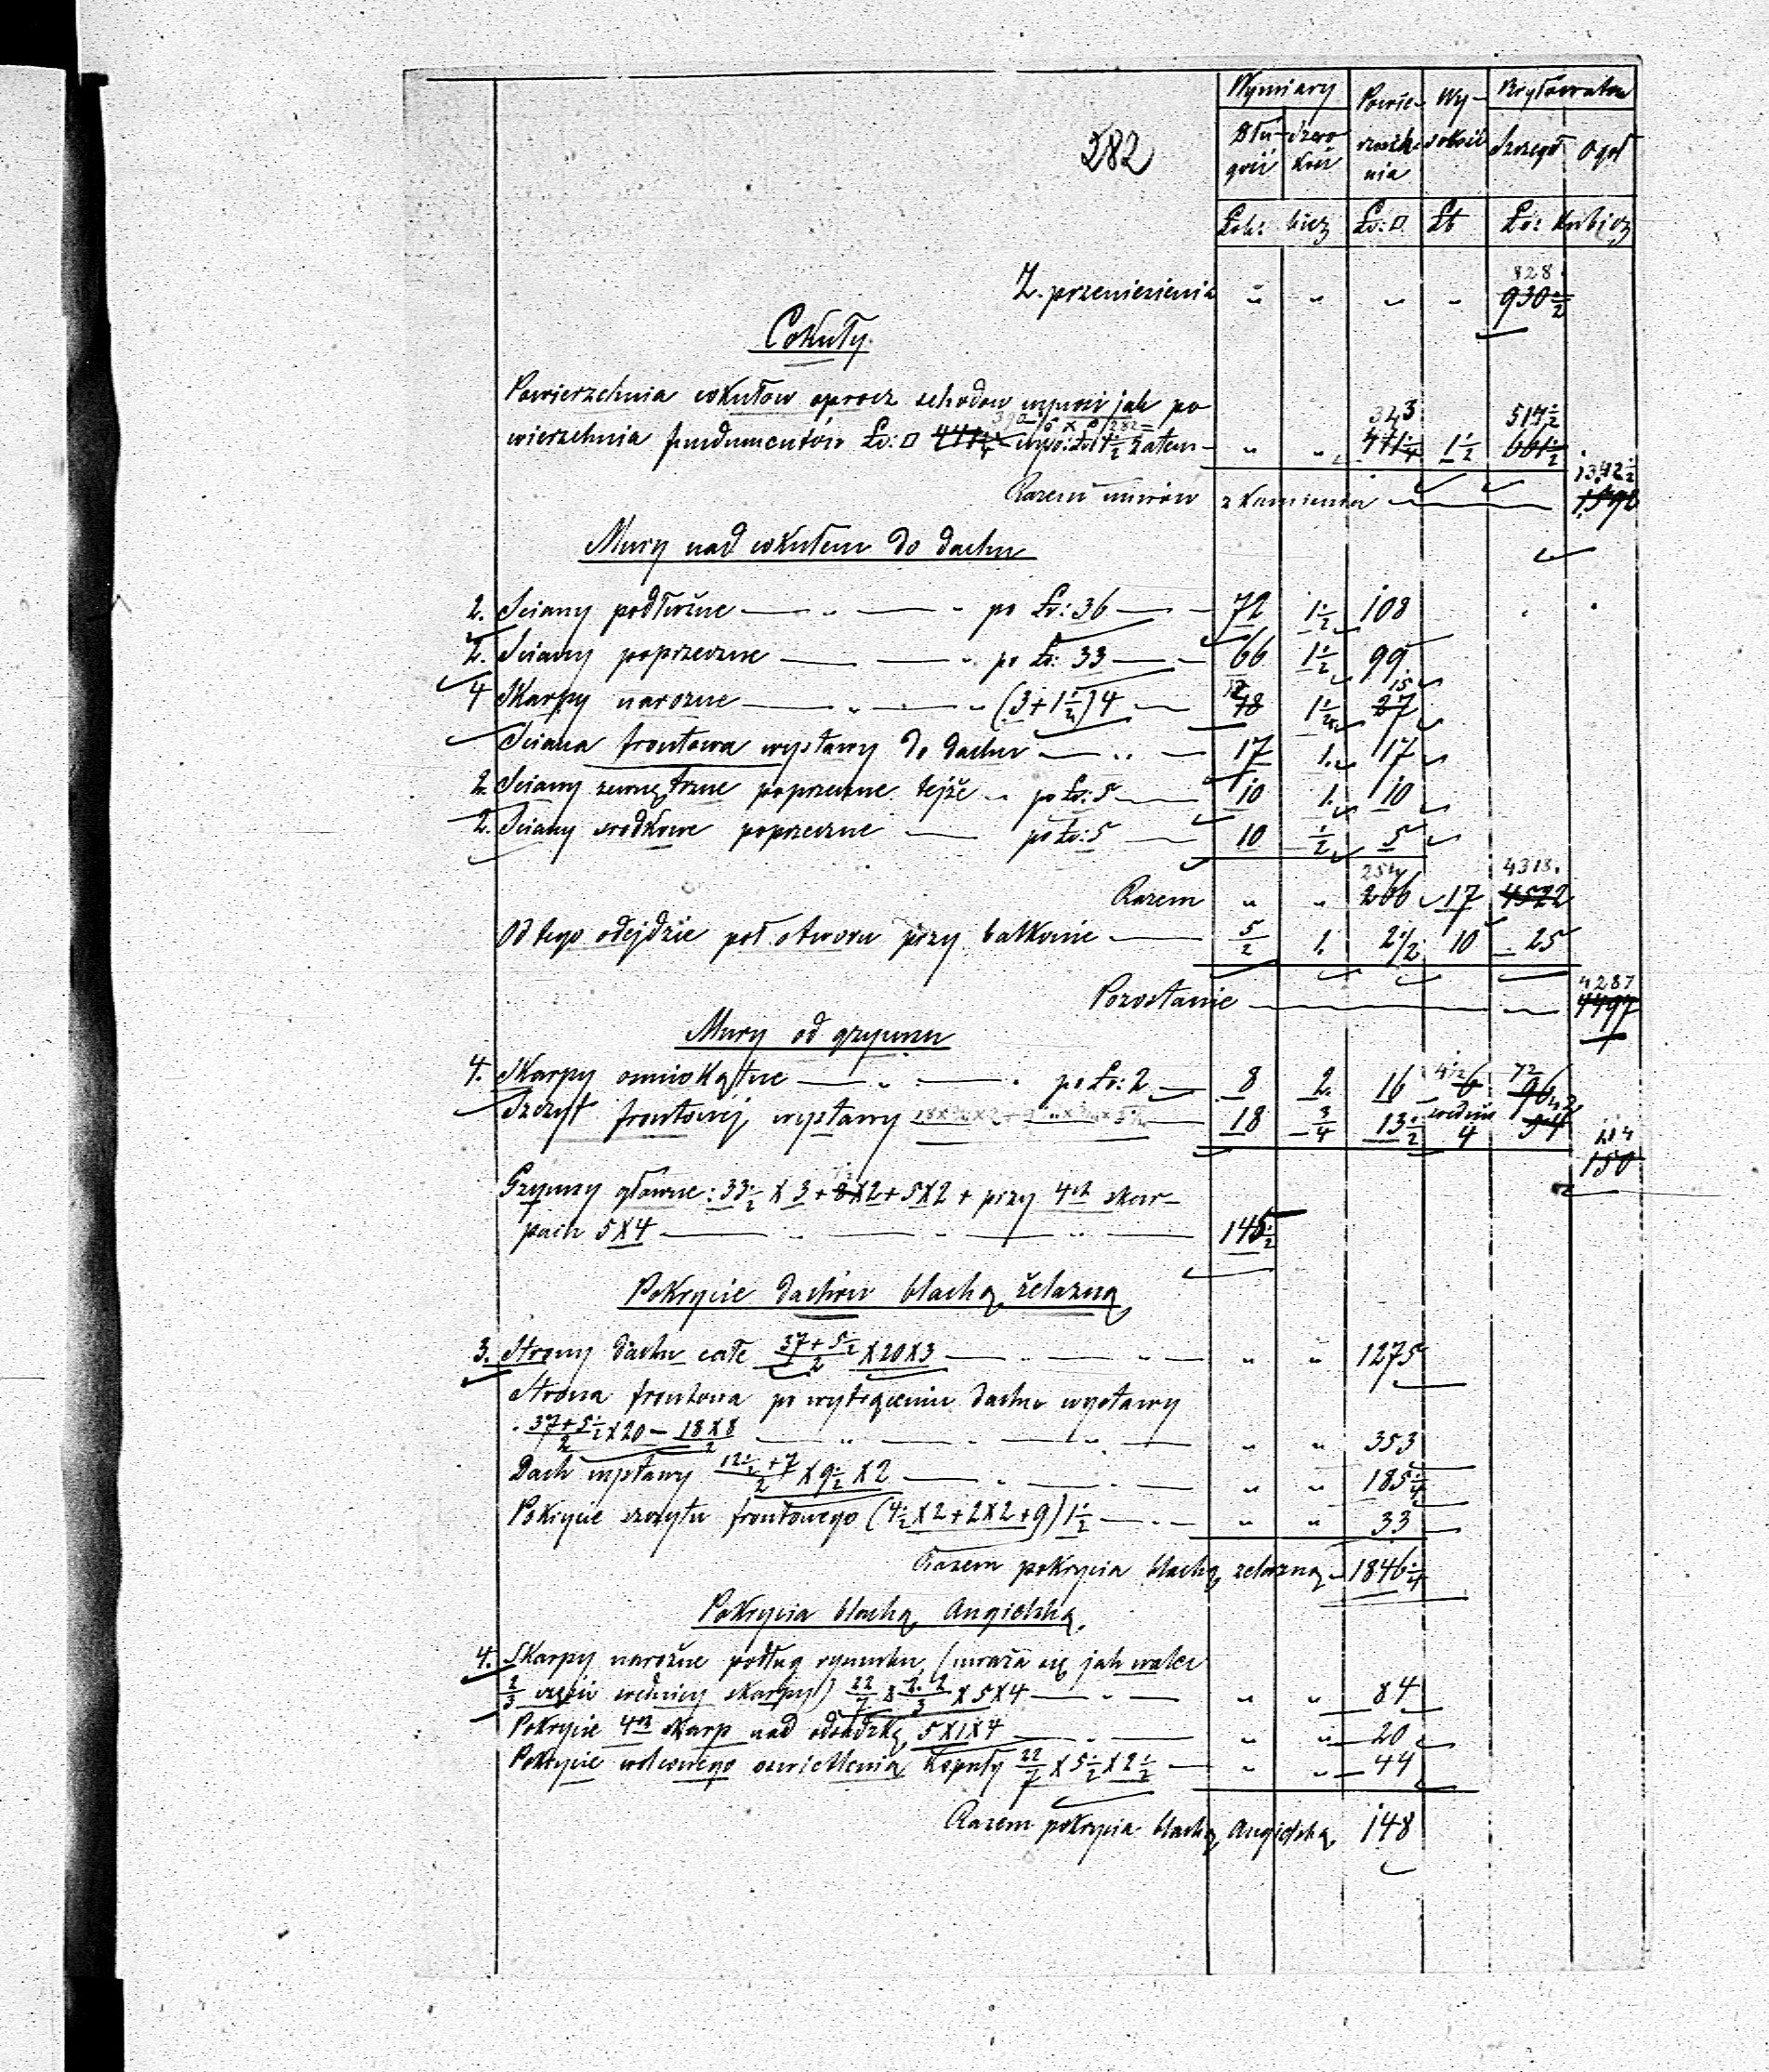 282
Wymiary Powie- Wy- Bryłowatość
Dłu- Szero- rzch- sokość Szczegó Ogół
gość kość nia
Łok: bież Ło: □ Łk Ło: Kubicz
828
Z. przeniesienia " " " " 930 1/2
Cokuły.
Powierzchnia cokułow oprocz schodow wynosi jak po-
323 517 1/2
wierzchnia fundamentów Ło: □ zatem " " 441 1/4 1 1/2 661 1/2
1342 1/2
Razem murów z kamienia 1592
Mury nad cokułem do dachu
2. Sciany podłużne " " po Ło: 36 72 1 1/2 108
2. Sciany poprzeczne " po Ło: 33 66 1 1/2 99
12 15
4 Skarpy narozne " " (3+1 1/2)4 18 1 1/2 27
Sciana frontowa wystawy do dachu " 17 1. 17
2. Sciany zewnętrzne poprzeczne tejże " po Ło: 5 10 1. 10
2. Sciany srodkowe poprzeczne po Ło: 5 10 1/2 5
254 4318.
Razem " " 266 17 4522
Od tego odejdzie poł. otworu przy balkonie 5/2 1. 2 1/2 10 25
4287
Pozostanie 4497
Mury od gzymsu
4. Skarpy osmiokątne " po Ło: 2 8 2. 16 4 1/2 6 72 96
Szczyt frontowéj wystawy 18 3/4 13 1/2 srednio 4 54
150
Gzymsy głowne: 33 1/2 X 3 + 8X2 + 5X2 + przy 4ch skar-
pach 5X4 " " " 145 1/2
Pokrycie dachów blachą żelazną
3. Strony dachu całe (37+5 1/2)/2 X20X3 " " " " 1275
Strona frontowa po wytrąceniu dachu wystawy
(37+5 1/2)/2 X20 — (18X8)/2 " " " " " 353
Dach wystawy (12 1/2 +7)/2 X 9 1/2 X 2 " " " " 185 1/4
Pokrycie szczytu frontowego (4 1/2 X2+2X2+9)1 1/2 " " " 33
Razem pokrycia blachą zelazną 1846 1/4
Pokrycia blachą Angielską.
4. Skarpy narożne podług rysunku, (uważa się jak walce
2/3 części srednicy skarpy) 22/7 X (2.2)/3 X 5X4 " " " 84
Pokrycie 4ch skarp nad odsadzką 5X1X4 " " " 20
Pokrycie oswietlenia Kopuły 22/7 X 5 1/2 X 2 1/2 " " 44
Razem pokrycia blachą Angielską. 148